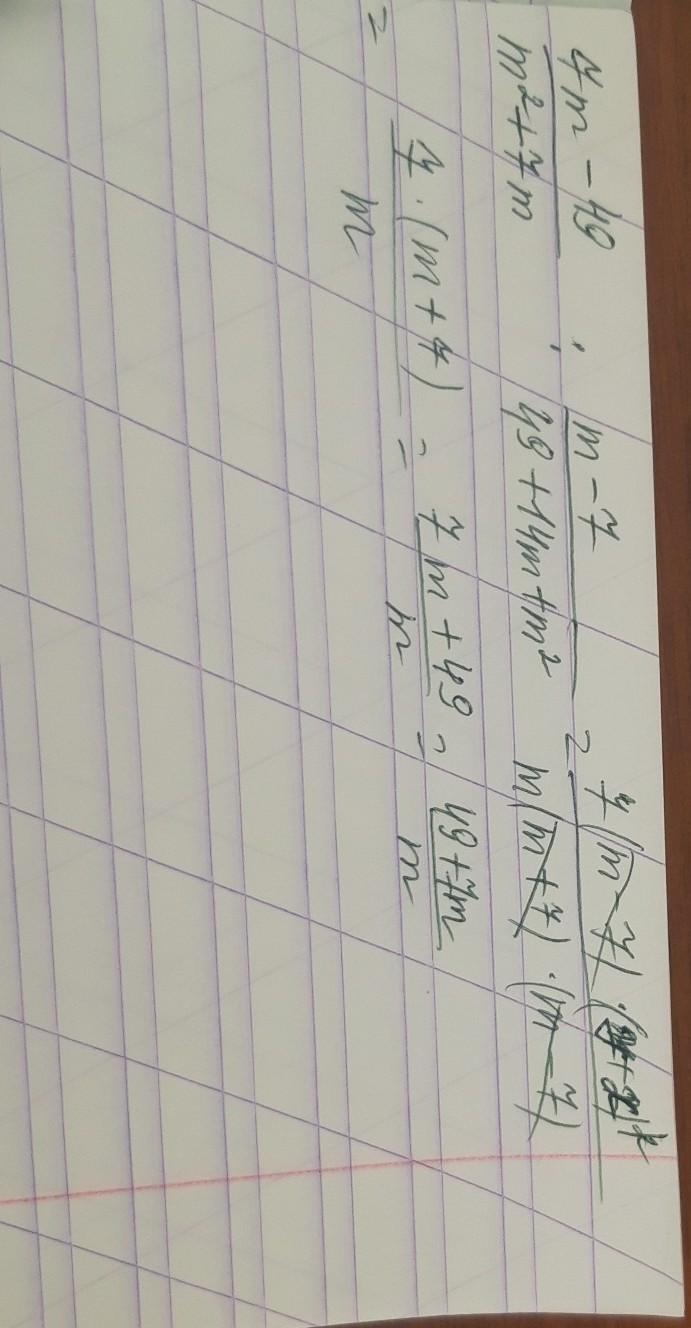 (7m - 49)/(m² + 7m) : (m - 7)/(49 + 14m + m²) = (7(m - 7) · ( )²)/(m(m + 7) · (m - 7))
= (7 · (m + 7))/m = (7m + 49)/m = (49 + 7m)/m